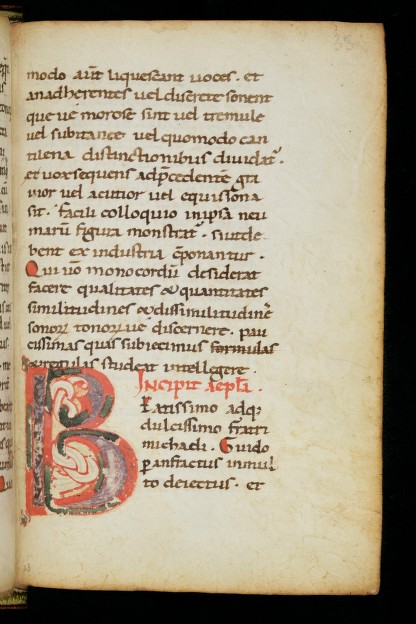 modo aūt liquescant uoces. et
anadherentes uel discrete sonent
que ue morose sint uel tremule
uel subitanee uel quomodo can
tilena distinctionibus diuidat᷑.
et uox sequens adp̄cedentē gra
uior uel acutior uel equissona
sit. facili colloquio inipsa neu
marū figura monstrat᷑. siut de
bent ex industria cōponantur.
Qui uō monocordū desiderat
facere qualitates & quantitates
similitudines & dissimilitudinē
sonoꝝ tonoꝝue discernere. pau
cissimas quas subiecimus formulas
& regulas studeat intellegere.
Incipit aepla.
Beatissimo adq;
dulcissimo fratri
michaeli. Guido
p anfractus inmul
to deiectus. et